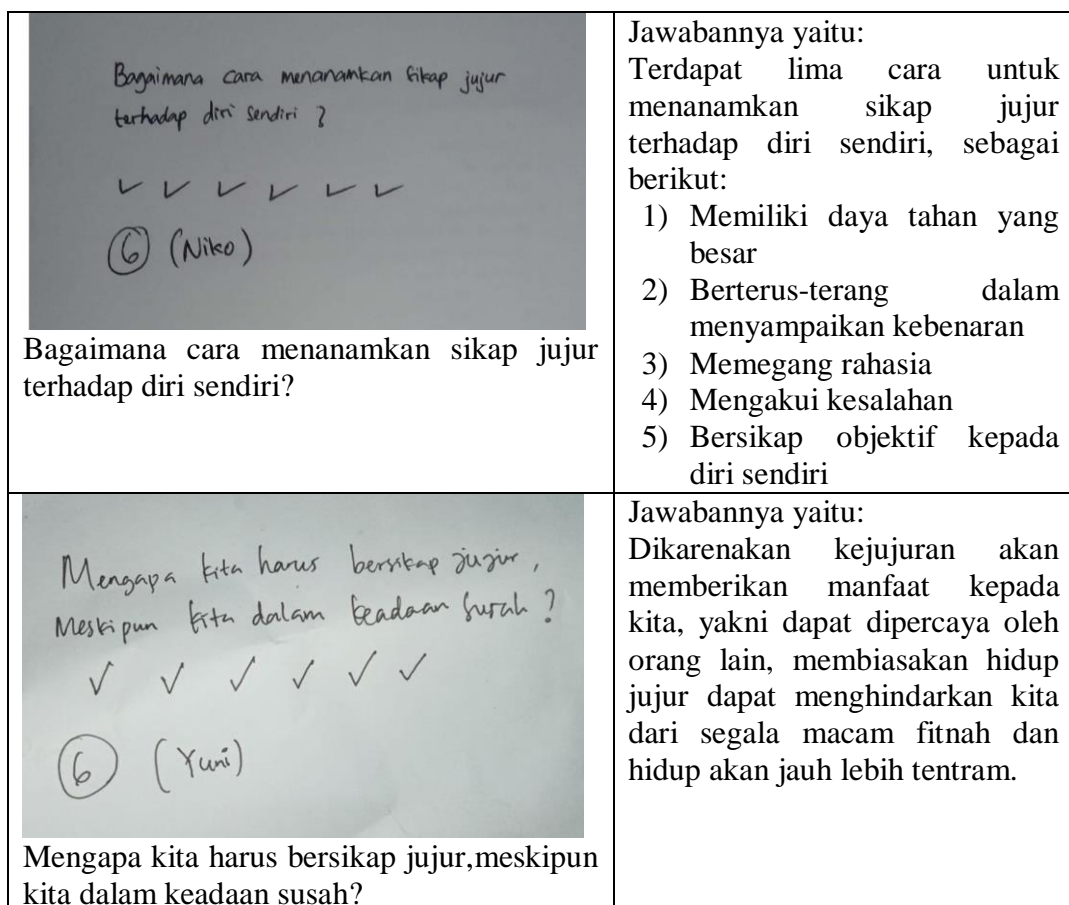 Bagaimana cara menanamkan sikap jujur
terhadap diri sendiri ?
6 (Niko)
Bagaimana cara menanamkan sikap jujur
terhadap diri sendiri?
Jawabannya yaitu:
Terdapat lima cara untuk
menanamkan sikap jujur
terhadap diri sendiri, sebagai
berikut:
1) Memiliki daya tahan yang
besar
2) Berterus-terang dalam
menyampaikan kebenaran
3) Memegang rahasia
4) Mengakui kesalahan
5) Bersikap objektif kepada
diri sendiri
Mengapa kita harus bersikap jujur,
Meskipun kita dalam keadaan susah ?
6 (Yuni)
Mengapa kita harus bersikap jujur,meskipun
kita dalam keadaan susah?
Jawabannya yaitu:
Dikarenakan kejujuran akan
memberikan manfaat kepada
kita, yakni dapat dipercaya oleh
orang lain, membiasakan hidup
jujur dapat menghindarkan kita
dari segala macam fitnah dan
hidup akan jauh lebih tentram.